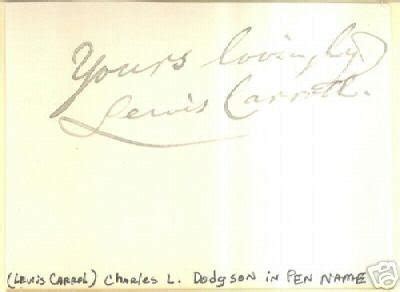 Yours lovingly,
Lewis Carroll.
(LEWIS CARROL) CHARLES L. DODGSON IN PEN NAME